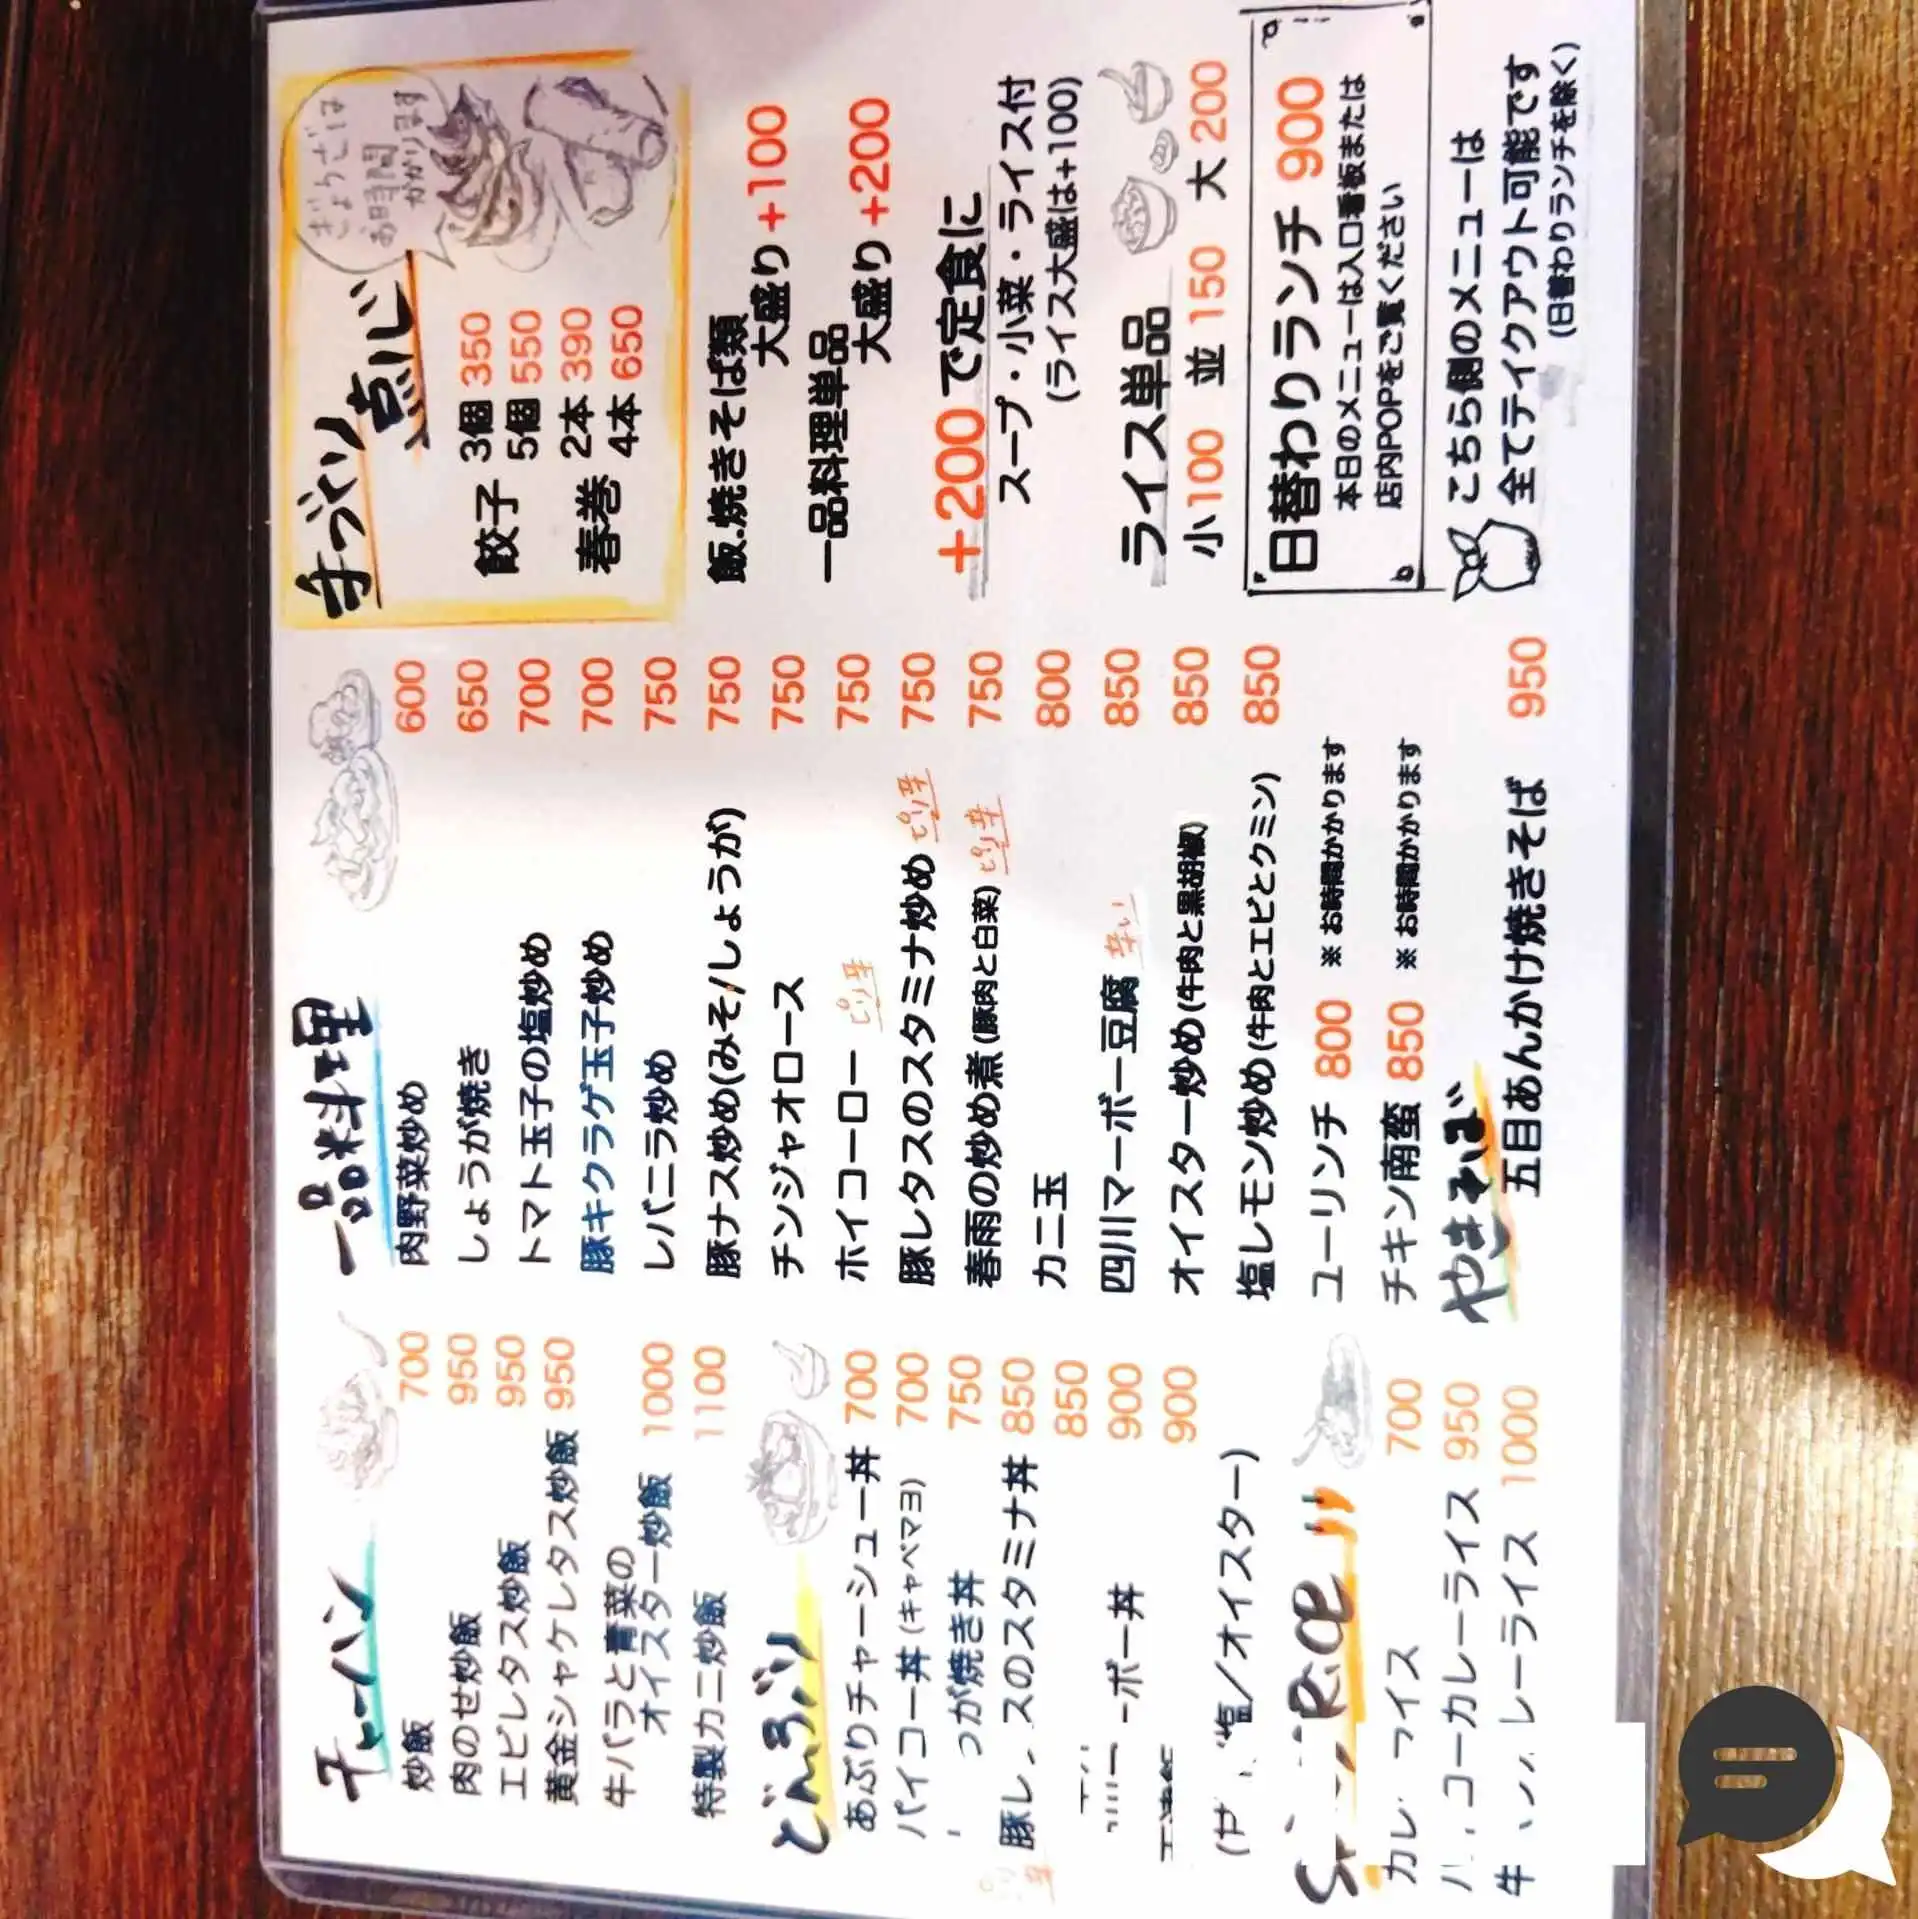 チャーハン
炒飯 700
肉のせ炒飯 950
エビレタス炒飯 950
黄金シャケレタス炒飯 950
牛バラと青菜の
オイスター炒飯 1000
特製カニ炒飯 1100
どんぶり
あぶりチャーシュー丼 700
パイコー丼 (キャベマヨ) 700
が焼き丼 750
豚レ スのスタミナ丼 850
850
ーボー丼 900
900
塩/オイスター)
RiCe
カレ 700
コーカレーライス 950
牛 レーライス 1000
一品料理
肉野菜炒め 600
しょうが焼き 650
トマト玉子の塩炒め 700
豚キクラゲ玉子炒め 700
レバニラ炒め 750
豚ナス炒め(みそ/しょうが) 750
チンジャオロース 750
ホイコーロー ピリ辛 750
豚レタスのスタミナ炒め ピリ辛 750
春雨の炒め煮(豚肉と白菜) ピリ辛 750
カニ玉 800
四川マーボー豆腐 辛い 850
オイスター炒め(牛肉と黒胡椒) 850
塩レモン炒め(牛肉とエビとクミン) 850
ユーリンチ 800 ※お時間かかります
チキン南蛮 850 ※お時間かかります
やきそば
五目あんかけ焼きそば 950
手づくり
点心
ぎょうざは
お時間
かかります
餃子 3個 350
5個 550
春巻 2本 390
4本 650
飯.焼きそば類
大盛り +100
一品料理単品
大盛り +200
+200で定食に
スープ・小菜・ライス付
(ライス大盛は+100)
ライス単品
小100 並150 大200
日替わりランチ 900
本日のメニューは入口看板または
店内POPをご覧ください
こちら側のメニューは
全てテイクアウト可能です
(日替わりランチを除く)